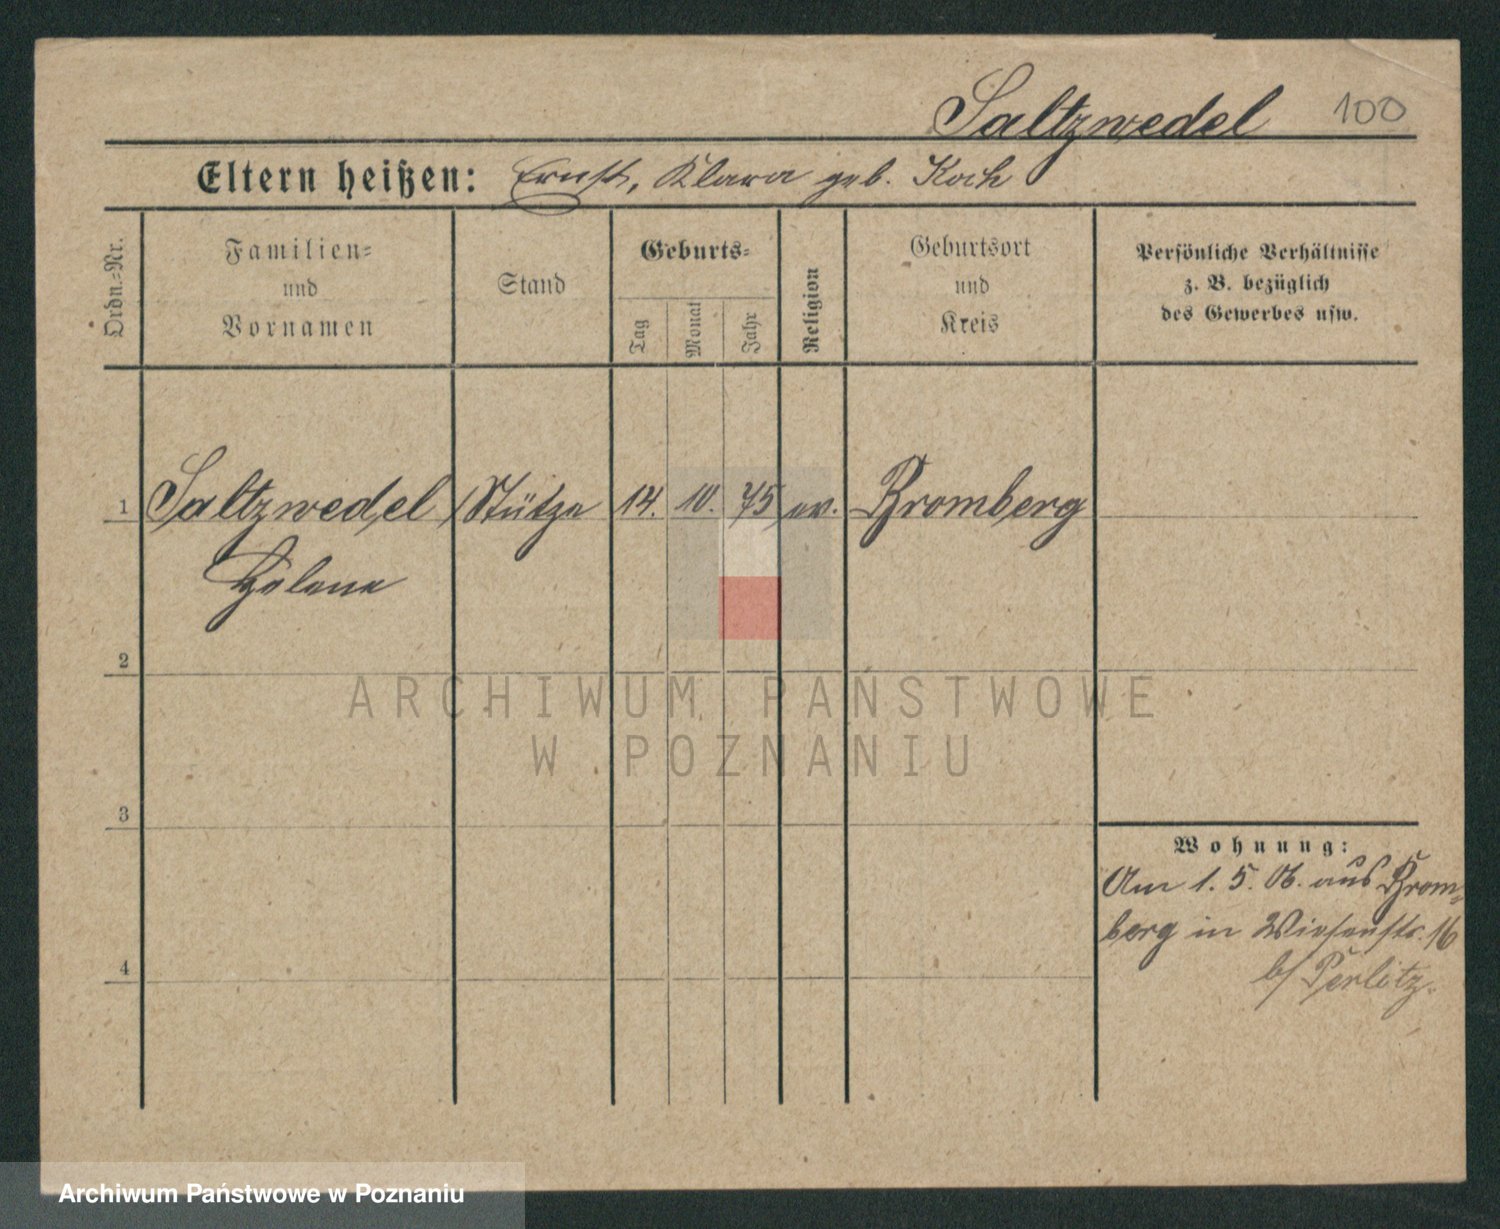 Saltzwedel 100
Eltern heißen: Ernst, Klara geb. Koch
Ordn.-Nr.
Familien-
und
Vornamen
Stand
Geburts-
Tag
Monat
Jahr
Religion
Geburtsort
und
Kreis
Persönliche Verhältnisse
z. B. bezüglich
des Gewerbes usw.
1 Saltzwedel Stütze 14. 10. 75 ev. Bromberg
Helene
2
3
4
Wohnung:
Am 1. 5. 06. aus Brom-
berg in Wiesenstr. 16
b/ Perlitz.
ARCHIWUM PAŃSTWOWE
W POZNANIU
Archiwum Państwowe w Poznaniu